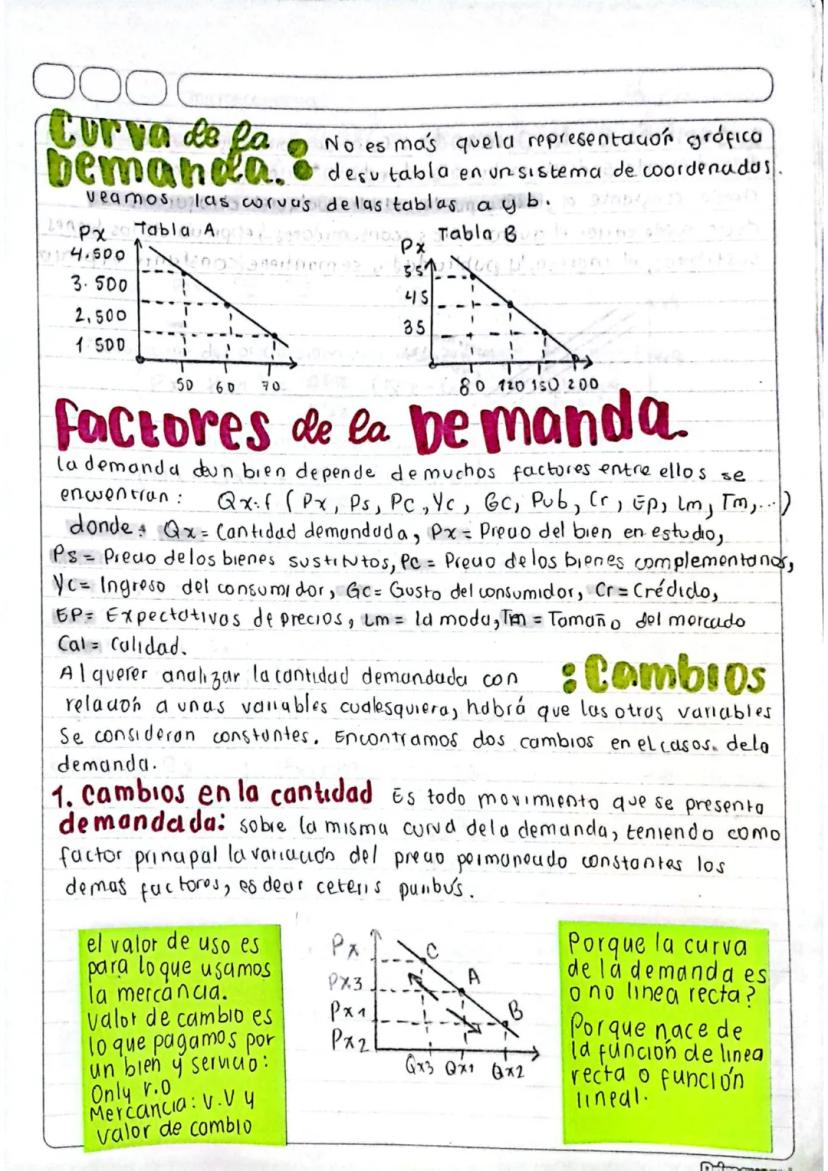 Curva de la
Demanda.: No es más que la representación gráfica
de su tabla en un sistema de coordenadas.
veamos las curvas de las tablas a y b.
Px Tabla A
4.500
3.500
2,500
1 500
50 60 70
Px Tabla B
55
45
35
80 120 150 200
Factores de la Demanda.
la demanda de un bien depende de muchos factores entre ellos se
encuentran: Qx:f (Px, Ps, Pc, Yc, Gc, Pub, Cr, Ep, Lm, Tm,...)
donde: Qx = Cantidad demandada, Px = Precio del bien en estudio,
Ps = Precio de los bienes sustitutos, Pc = Precio de los bienes complementarios,
Yc = Ingreso del consumidor, Gc = Gusto del consumidor, Cr = Crédido,
EP = Expectativas de precios, Lm = la moda, Tm = Tamaño del mercado
Cal = calidad.
:Cambios
Al querer analizar la cantidad demandada con
relación a unas variables cualesquiera, habrá que las otras variables
se consideran constantes. Encontramos dos cambios en el casos. de la
demanda.
1. Cambios en la cantidad Es todo movimiento que se presenta
demandada: sobre la misma curva de la demanda, teniendo como
factor principal la variación del precio permaneciendo constantes los
demas factores, es decir ceteris paribus.
el valor de uso es
para lo que usamos
la mercancia.
valor de cambio es
lo que pagamos por
un bien y servicio:
Only v.o
Mercancia: v.v y
valor de cambio
Px
Px3
Px1
Px2
C
A
B
Qx3 Qx1 Qx2
Porque la curva
de la demanda es
o no linea recta?
Porque nace de
la función de linea
recta o función
lineal.